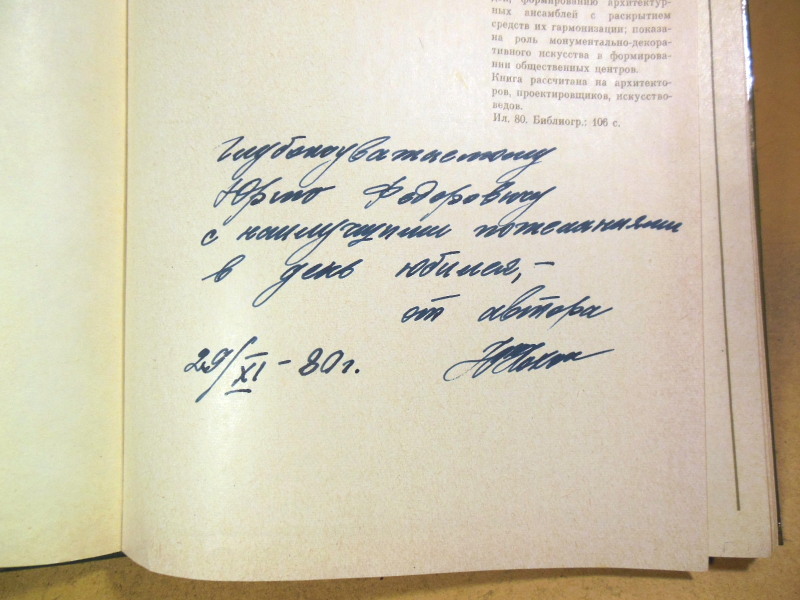 дий, формированию архитектур-
ных ансамблей с раскрытием
средств их гармонизации; показа-
на роль монументально-декора-
тивного искусства в формирова-
нии общественных центров.
Книга рассчитана на архитекто-
ров, проектировщиков, искусство-
ведов.
Ил. 80. Библиогр.: 106 с.
Глубокоуважаемому
Юрию Федоровичу
с наилучшими пожеланиями
в день юбилея,-
от автора
29/XI - 80 г.